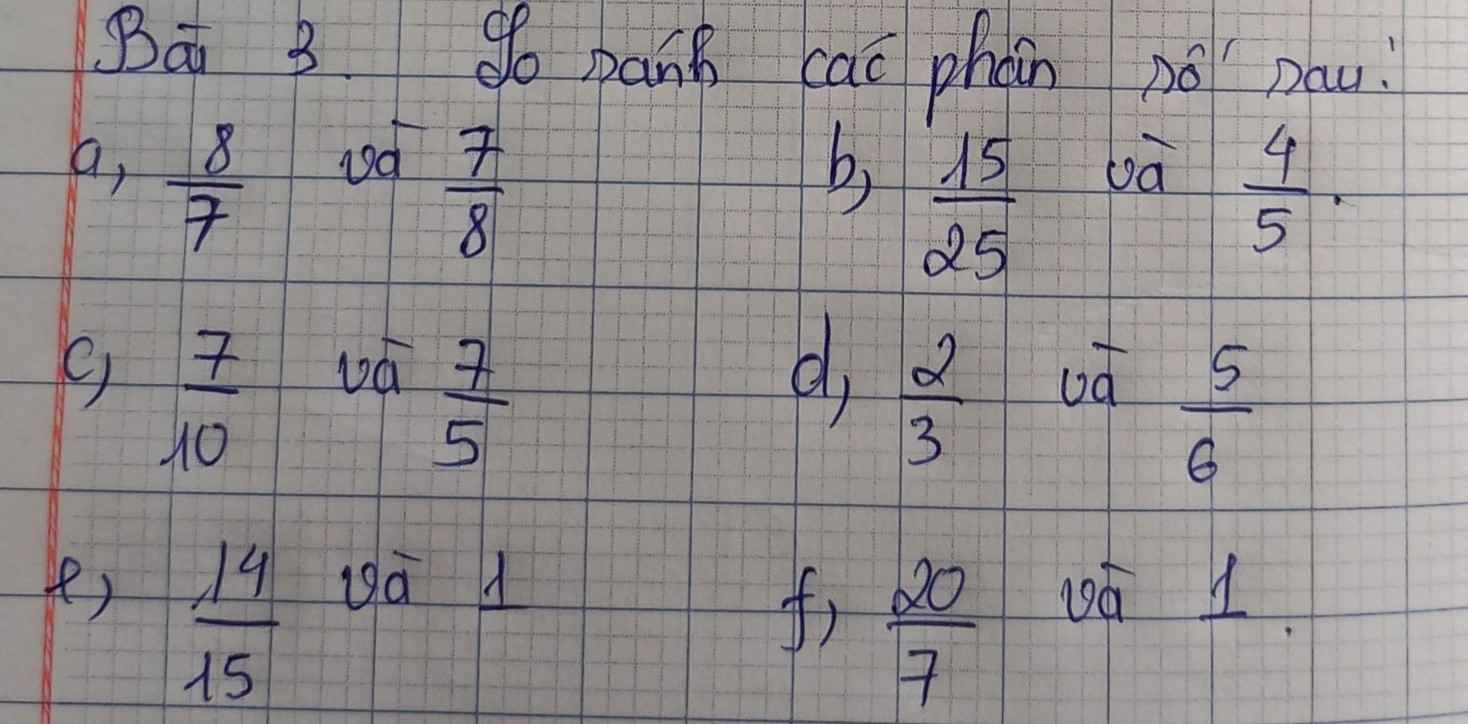 Bài 3. So sánh các phân số sau:
a, 8/7 và 7/8 b, 15/25 và 4/5.
c, 7/10 và 7/5 d, 2/3 và 5/6
e, 14/15 và 1 f, 20/7 và 1.